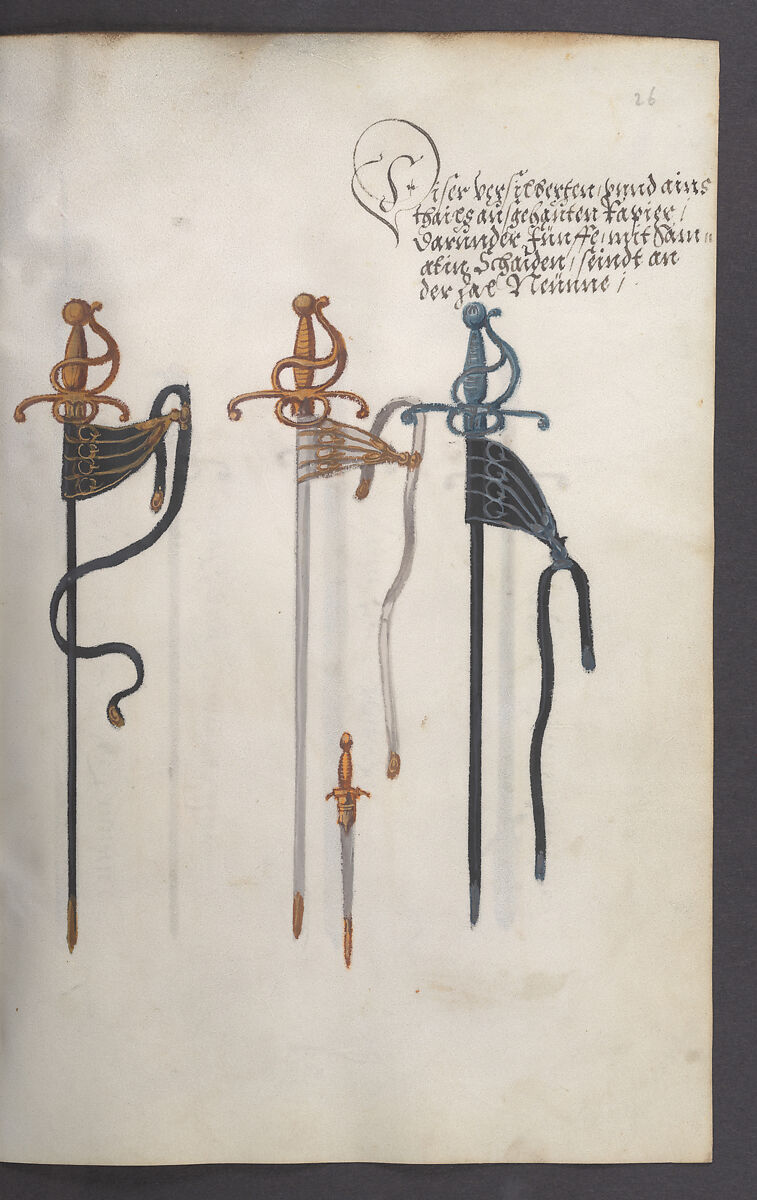 26
Diser versilberten, vnnd ains
thails ausgehauten Rapier /
darunder Fünffe, mit Sam=
atin Schaiden / seindt an
der zal Neünne /